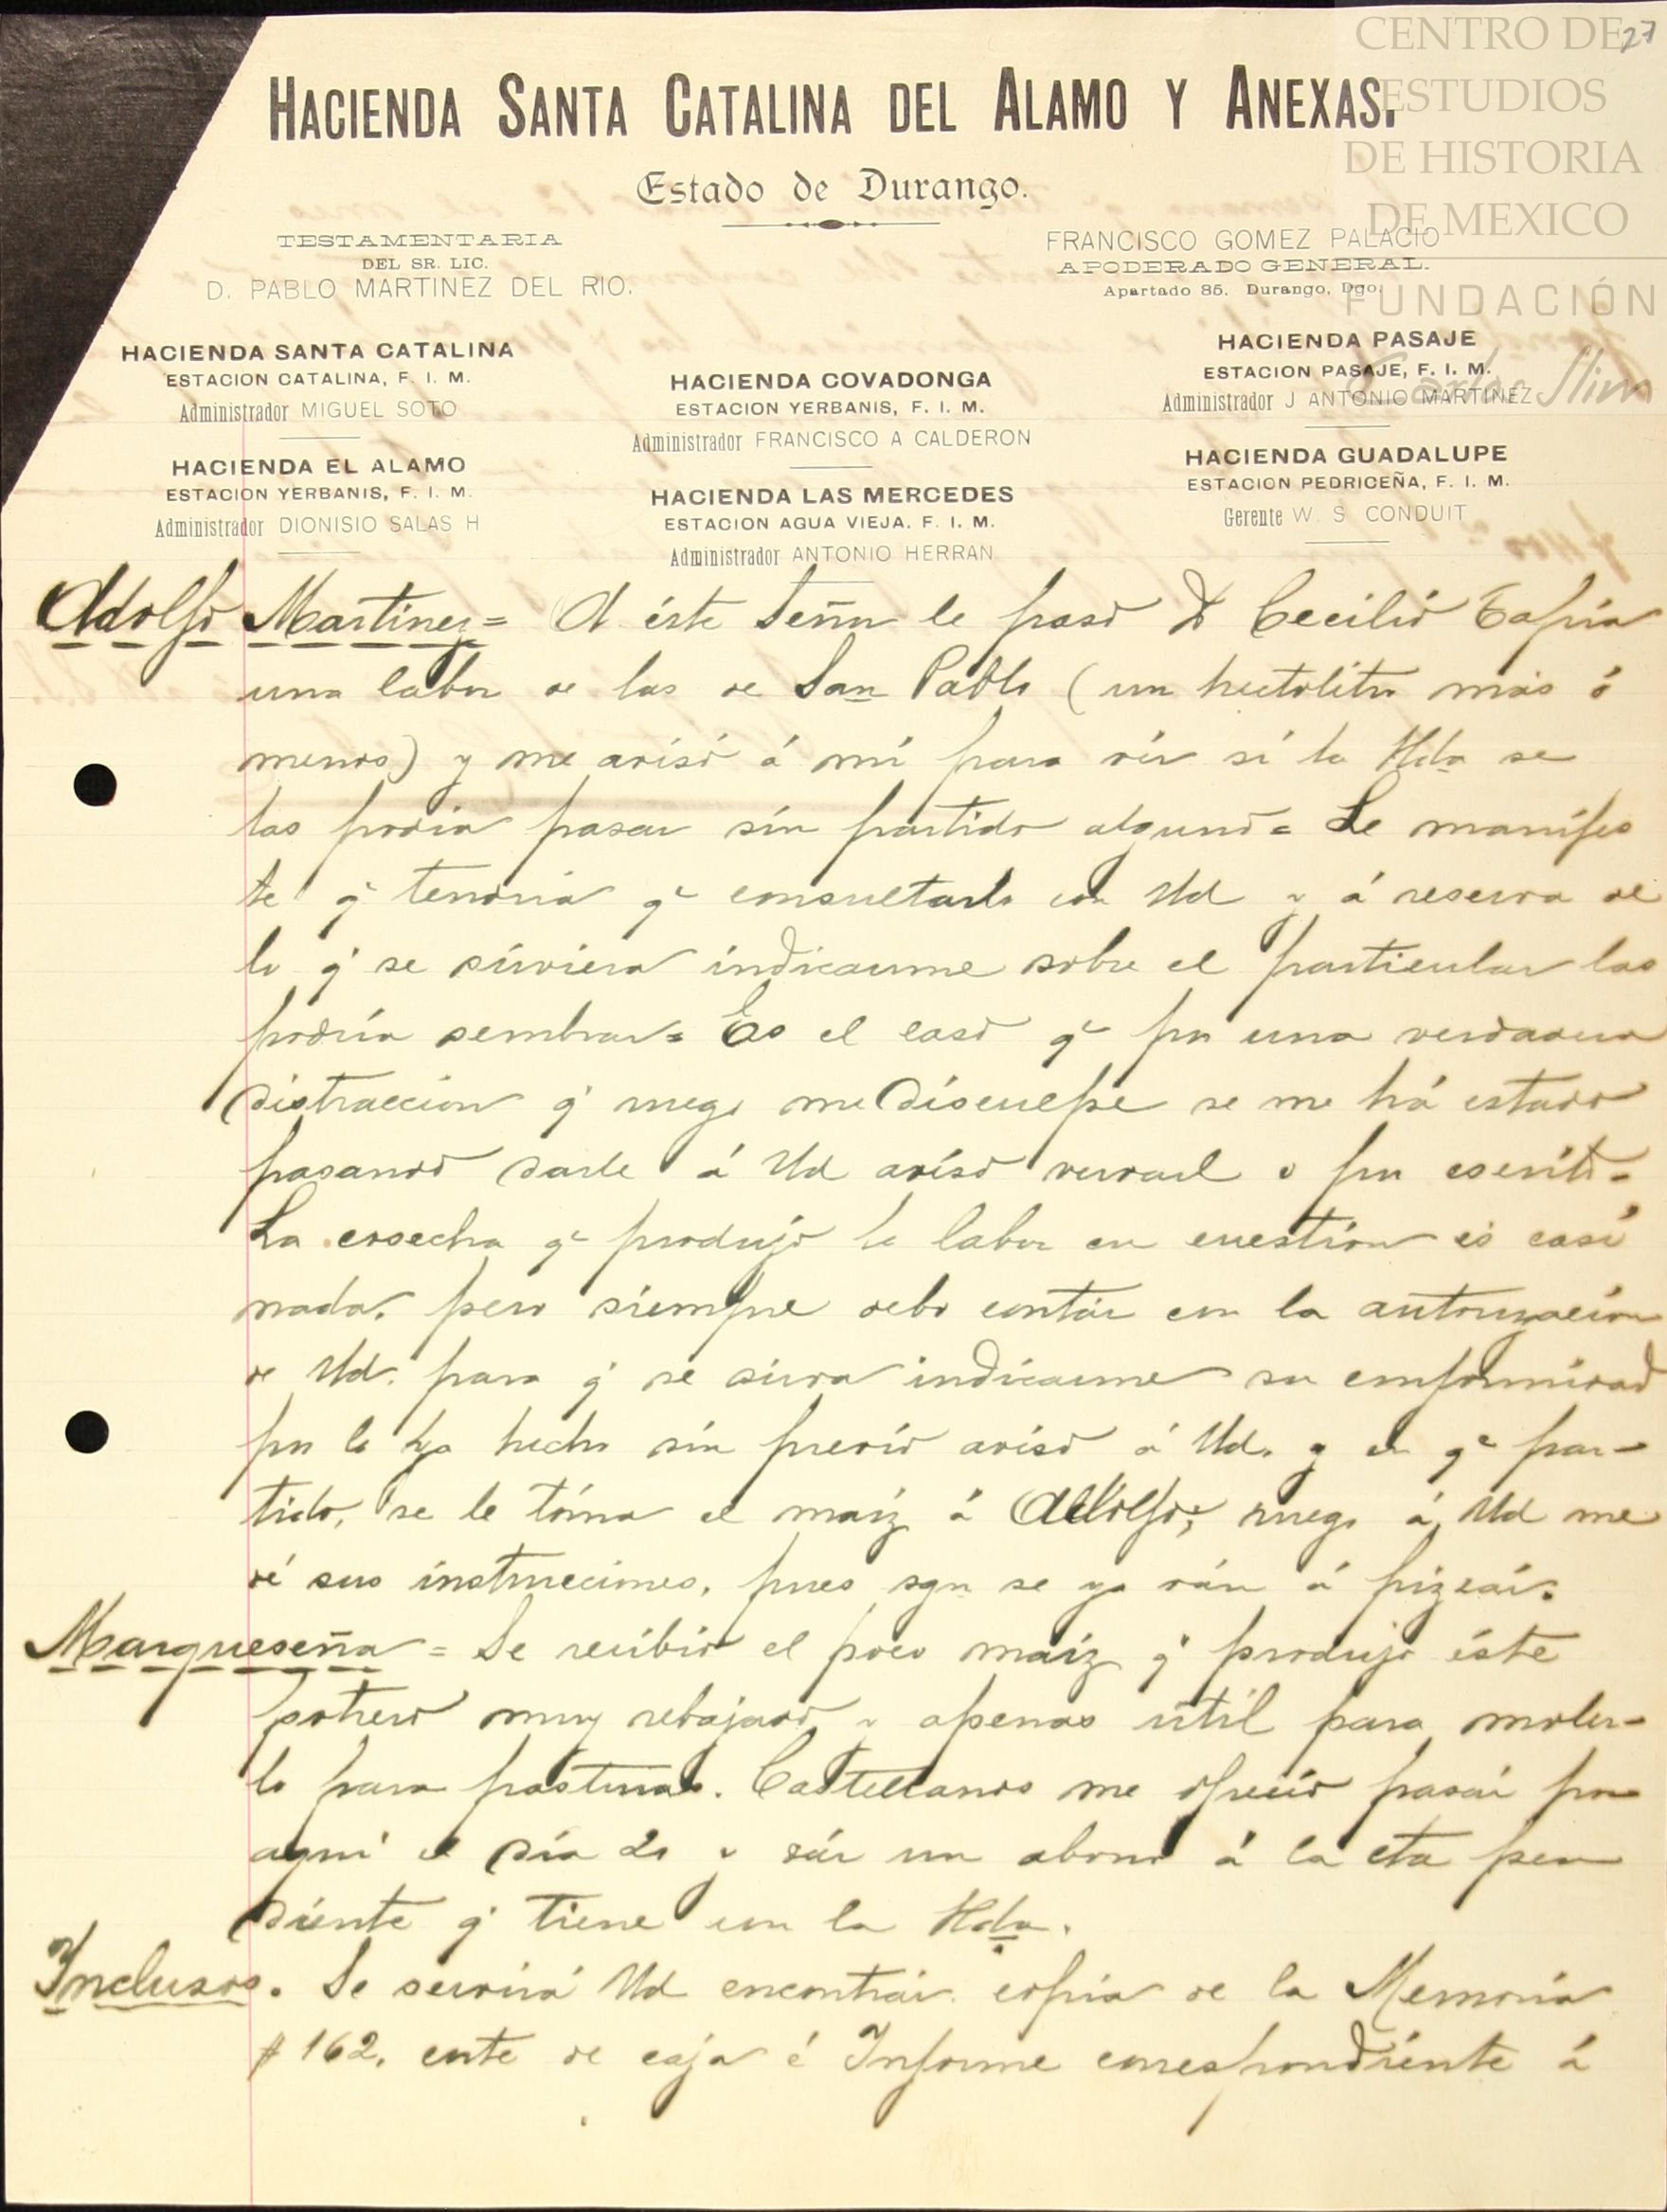 27
CENTRO DE
ESTUDIOS
DE HISTORIA
DE MEXICO
FUNDACIÓN
Carlos Slim
HACIENDA SANTA CATALINA DEL ALAMO Y ANEXAS.
Estado de Durango.
TESTAMENTARIA
DEL SR. LIC.
D. PABLO MARTINEZ DEL RIO.
FRANCISCO GOMEZ PALACIO
APODERADO GENERAL.
Apartado 85. Durango, Dgo.
HACIENDA SANTA CATALINA
ESTACION CATALINA, F. I. M.
Administrador MIGUEL SOTO
HACIENDA EL ALAMO
ESTACION YERBANIS, F. I. M.
Administrador DIONISIO SALAS H
HACIENDA COVADONGA
ESTACION YERBANIS, F. I. M.
Administrador FRANCISCO A CALDERON
HACIENDA LAS MERCEDES
ESTACION AGUA VIEJA. F. I. M.
Administrador ANTONIO HERRAN
HACIENDA PASAJE
ESTACION PASAJE, F. I. M.
Administrador J ANTONIO MARTINEZ
HACIENDA GUADALUPE
ESTACION PEDRICEÑA, F. I. M.
Gerente W. S. CONDUIT
Adolfo Martinez = A éste Señor le pasó D Cecilio Tapia
una labor de las de San Pablo (un hectolitro más ó
menos) y me avisó á mí para vér si la Hda se
las podia pasar sin partido alguno = Le manifes
te q tendria q consultarlo con Ud y á reserva de
lo q se sirviera indicarme sobre el particular las
podría sembrar = Es el caso q por una verdadera
distraccion q ruego me disculpe se me há estado
pasando darle á Ud aviso verval o por escrito =
La cosecha q produjó la labor en cuestión es casi
nada, pero siempre debo contár con la autorización
de Ud. para q se sirva indicarme su conformidad
por lo ya hecho sin previo aviso á Ud. y en q par-
tido, se le tóma el maíz á Adolfo, ruego á Ud me
dé sus instrucciones, pues se ya ván á pizcár.
Marqueseña = Se recibió el poco maíz q produjo éste
potrero muy rebajado y apenas útil para moler-
lo para pasturas. Castellanos me ofreció pasár por
aquí el día 20 y dár un abono á la cta pen
diente q tiene con la Hda.
Inclusos. Se servirá Ud encontrár copia de la Memoria
# 162, corte de caja é Informe correspondiente á